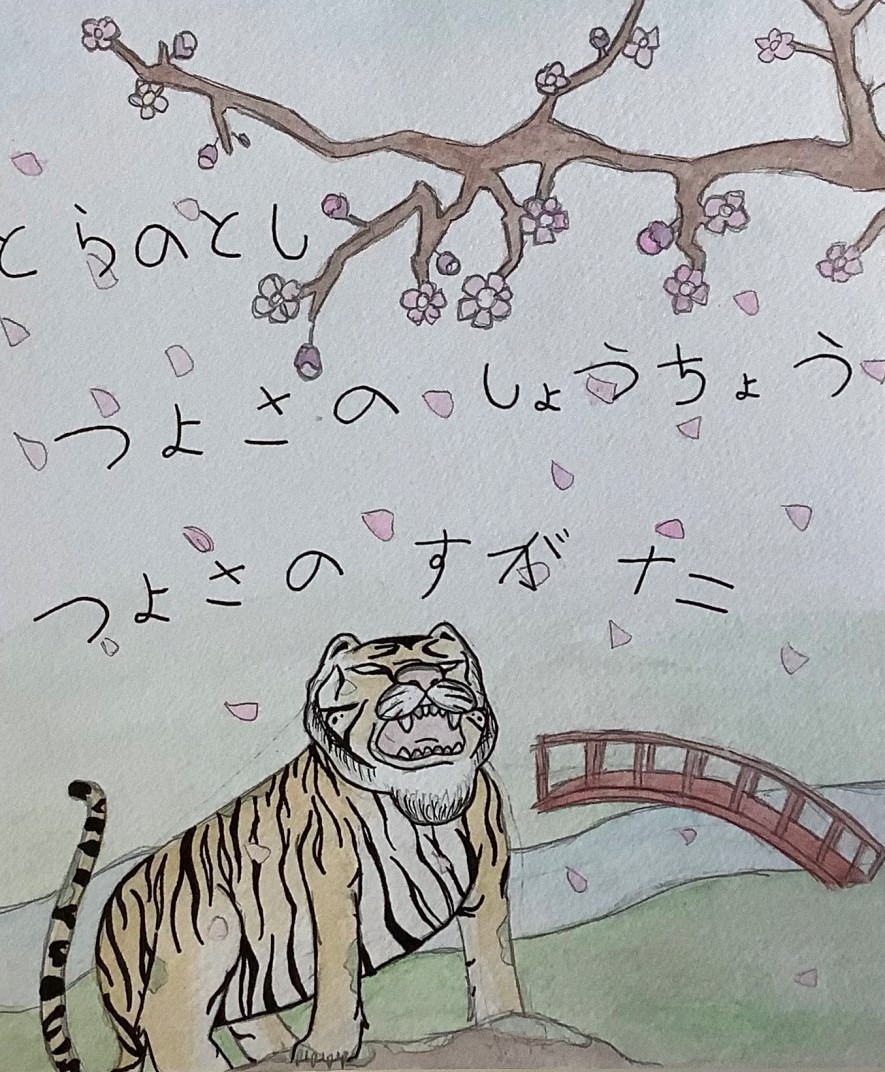 とらのとし
つよさの しょうちょう
つよさの すがた